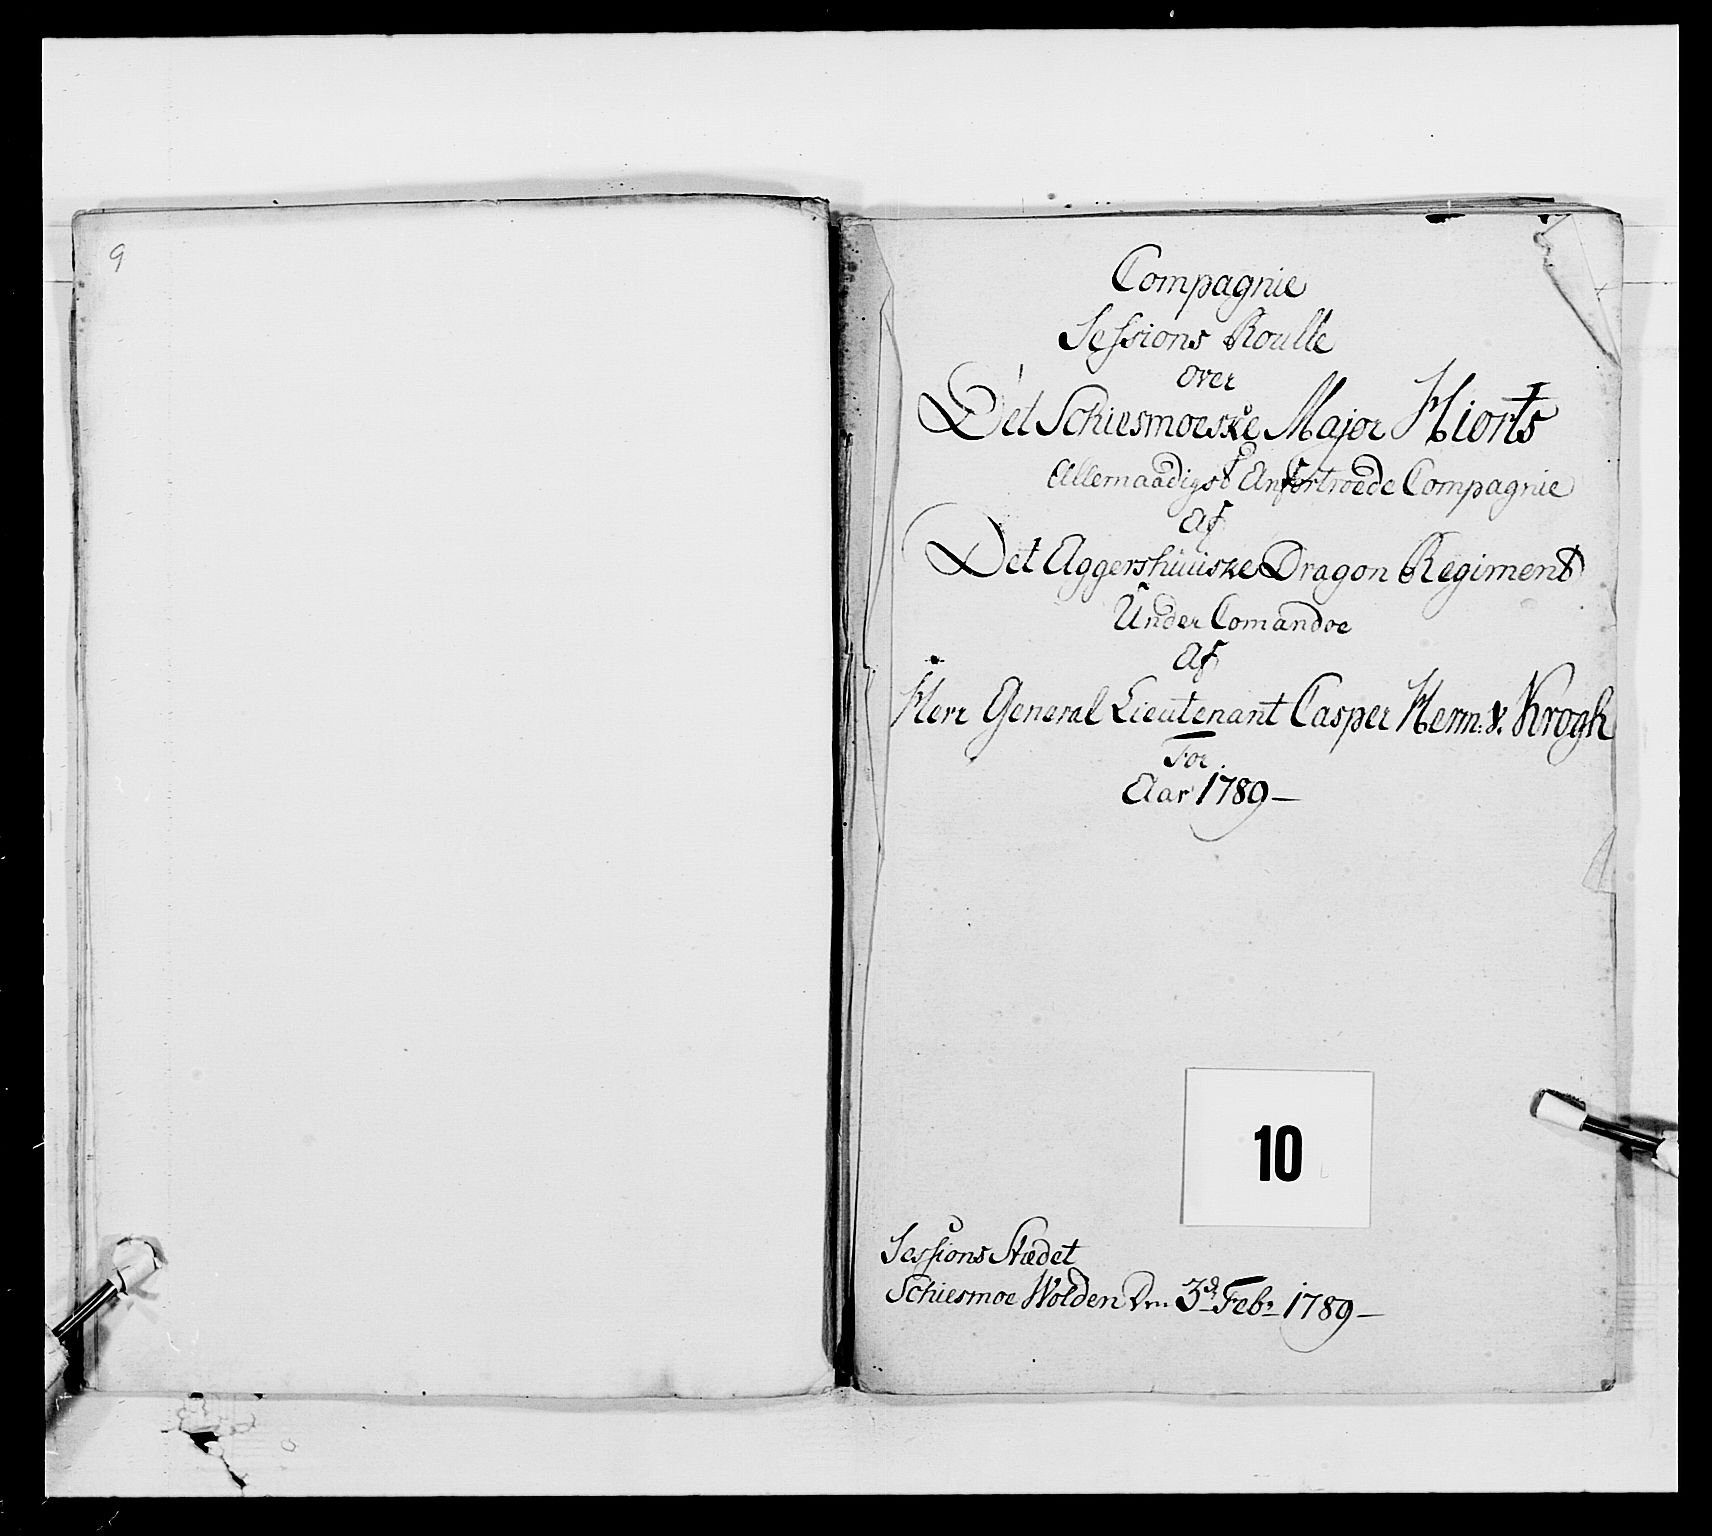 9
Compagnie
Sessions Roulle
over
Det Schiesmoeske Major Hiorts
Allernaadigst Anfortroede Compagnie
Af
Det Aggershuuiske Dragon Regiment
Under Comandoe
Af
Herr General Lieutenant Casper Herm: v. Krogh
For
Aar 1789 –
10
Sessions Stædet
Schiesmoe Wolden Den 3d Febr 1789 –